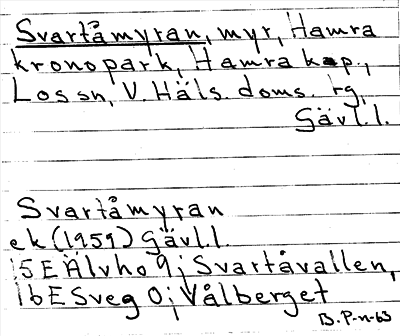 Svartåmyran, myr, Hamra
kronopark, Hamra kap.,
Los sn, V. Häls. doms. rg,
Gävl.l.
Svartåmyran
ek (1959) Gävl.l.
15E Älvho 9; Svartåvallen,
16E Sveg 0; Vålberget
B.P-n-63